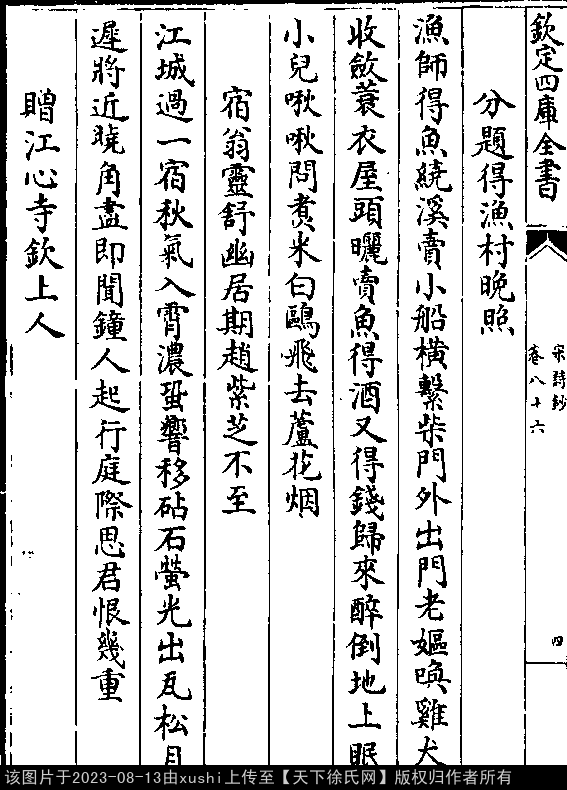 欽定四庫全書
宋詩鈔
卷八十六
四
分題得漁村晚照
漁師得魚繞溪賣小船橫繫柴門外出門老嫗喚雞犬
收斂蓑衣屋頭曬賣魚得酒又得錢歸來醉倒地上眠
小兒啾啾問煮米白鷗飛去蘆花烟
宿翁靈舒幽居期趙紫芝不至
江城過一宿秋氣入霄濃蛩響移砧石螢光出瓦松月
遲將近曉角盡即聞鐘人起行庭際思君恨幾重
贈江心寺欽上人
该图片于2023-08-13由xushi上传至【天下徐氏网】版权归作者所有